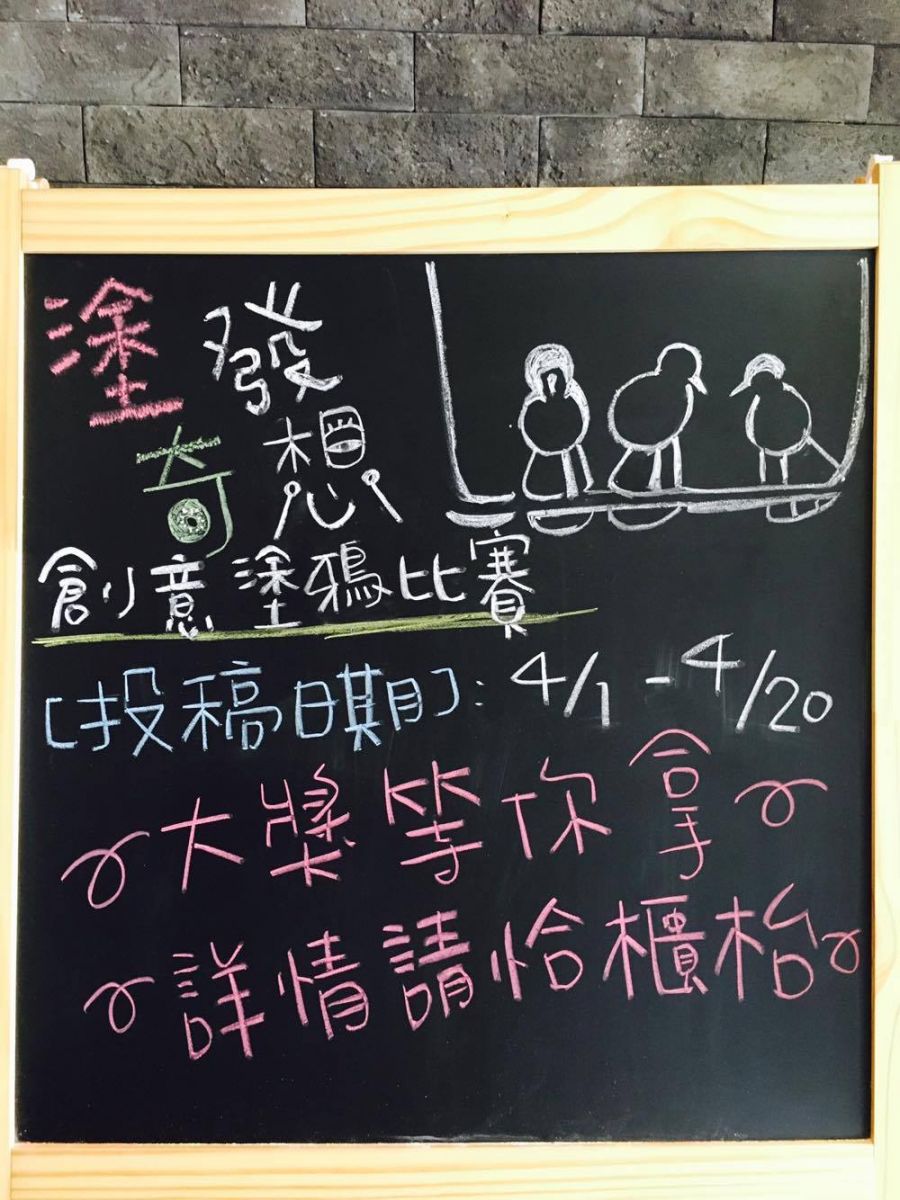 塗發
奇想
創意塗鴉比賽
[投稿日期]：4/1-4/20
大獎等你拿
詳情請恰櫃枱